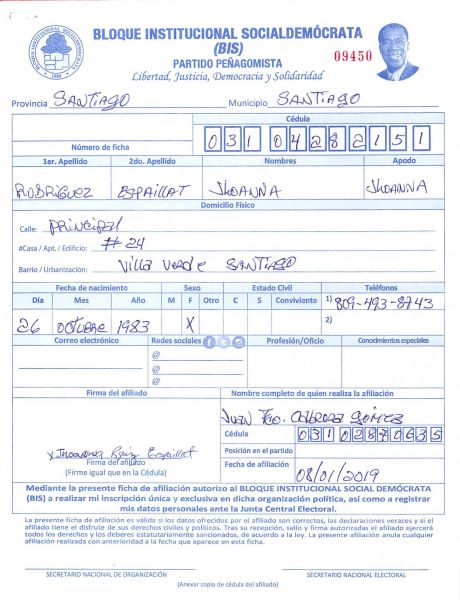 BLOQUE INSTITUCIONAL SOCIALDEMÓCRATA
(BIS)
PARTIDO PEÑAGOMISTA
Libertad, Justicia, Democracia y Solidaridad
09450
Provincia SANTIAGO Municipio SANTIAGO
Cédula
Número de ficha 031 0428215 1
1er. Apellido 2do. Apellido Nombres Apodo
RODRIGUEZ ESPAILLAT JHOANNA JHOANNA
Domicilio Físico
Calle: PRINCIPAL
#Casa / Apt. / Edificio: # 24
Barrio / Urbanización: Villa Verde SANTIAGO
Fecha de nacimiento Sexo Estado Civil Teléfonos
Día Mes Año M F Otro C S Conviviente 1) 809-493-8743
26 OCTUBRE 1983 X 2)
Correo electrónico Redes sociales Profesión/Oficio Conocimientos especiales
@
@
@
Firma del afiliado Nombre completo de quien realiza la afiliación
Juan Fco. Cabrera Gómez
Cédula 03102870635
Jhoanna Espaillat
Firma del afiliado
(Firme igual que en la Cédula)
Posición en el partido
Fecha de afiliación 08/01/2019
Mediante la presente ficha de afiliación autorizo al BLOQUE INSTITUCIONAL SOCIAL DEMÓCRATA
(BIS) a realizar mi inscripción única y exclusiva en dicha organización política, así como a registrar
mis datos personales ante la Junta Central Electoral.
La presente ficha de afiliación en válida si los datos ofrecidos por el afiliado son correctos, las declaraciones veraces y si el
afiliado tiene el disfrute de sus derechos civiles y políticos. Tras su recepción, sello y firma autorizadas el afiliado ejercerá
todos los derechos y los deberes estatutariamente sancionados, de acuerdo a la ley. La presente afiliación anula cualquier
afiliación realizada con anterioridad a la fecha que aparece en esta ficha.
SECRETARIO NACIONAL DE ORGANIZACIÓN SECRETARIO NACIONAL ELECTORAL
(Anexar copia de cédula del afiliado)